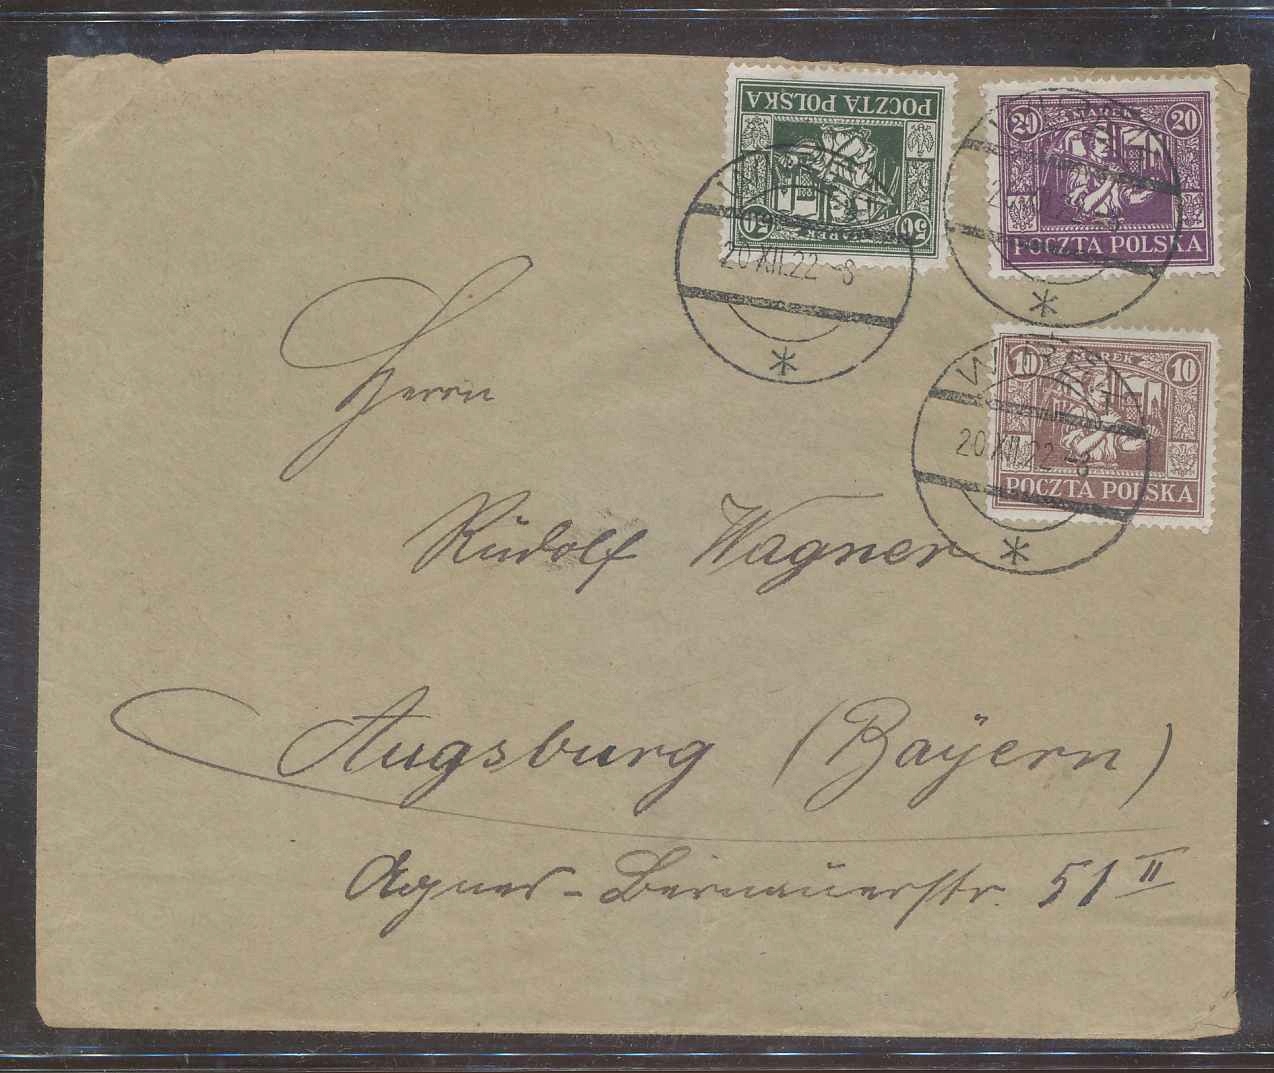 POCZTA POLSKA
50 MAREK 50
20 MAREK 20
POCZTA POLSKA
10 MAREK 10
POCZTA POLSKA
20 XII.22 -8
20 XII.22 -8
Herrn
Rudolf Wagner
Augsburg (Bayern)
Agnes-Bernauerstr. 51 II